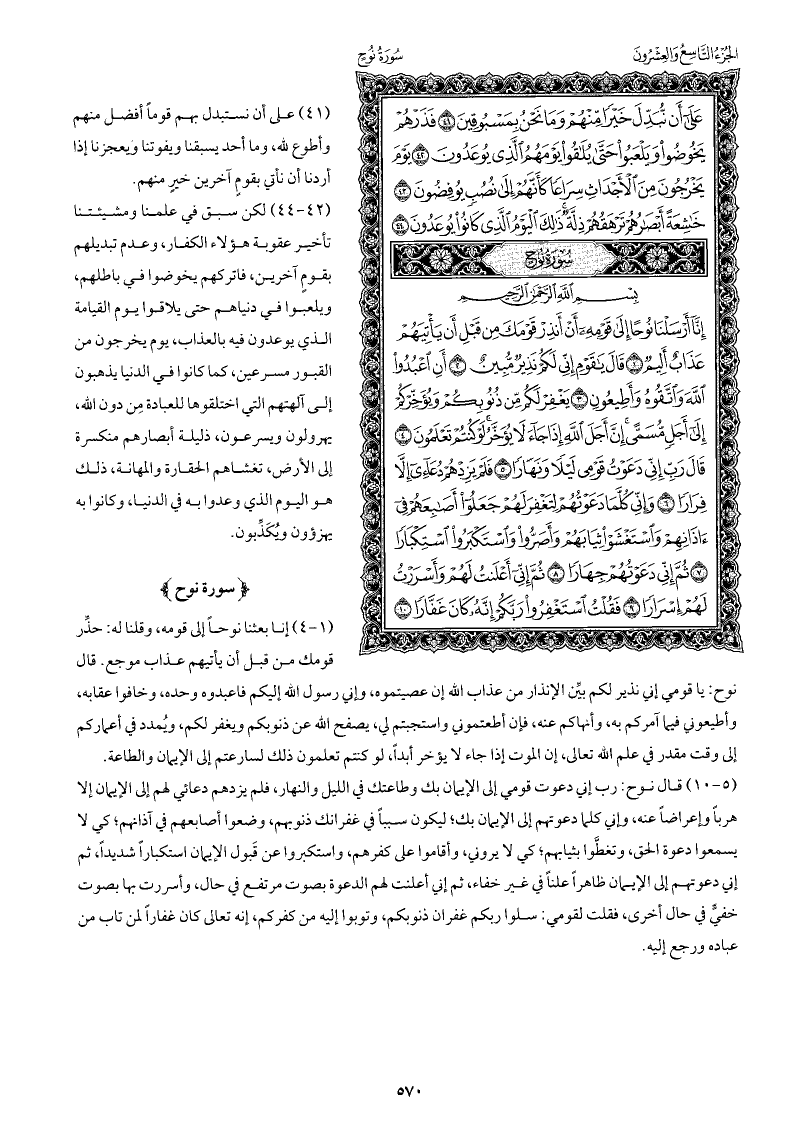 الجزء التاسع والعشرون
سورة نوح
عَلَىٰٓ أَن نُّبَدِّلَ خَيْرًا مِّنْهُمْ وَمَا نَحْنُ بِمَسْبُوقِينَ ٤١ فَذَرْهُمْ
يَخُوضُوا۟ وَيَلْعَبُوا۟ حَتَّىٰ يُلَٰقُوا۟ يَوْمَهُمُ ٱلَّذِى يُوعَدُونَ ٤٢ يَوْمَ
يَخْرُجُونَ مِنَ ٱلْأَجْدَاثِ سِرَاعًا كَأَنَّهُمْ إِلَىٰ نُصُبٍ يُوفِضُونَ ٤٣
خَٰشِعَةً أَبْصَٰرُهُمْ تَرْهَقُهُمْ ذِلَّةٌ ذَٰلِكَ ٱلْيَوْمُ ٱلَّذِى كَانُوا۟ يُوعَدُونَ ٤٤
سورة نوح
بِسْمِ ٱللَّهِ ٱلرَّحْمَٰنِ ٱلرَّحِيمِ
إِنَّآ أَرْسَلْنَا نُوحًا إِلَىٰ قَوْمِهِۦٓ أَنْ أَنذِرْ قَوْمَكَ مِن قَبْلِ أَن يَأْتِيَهُمْ
عَذَابٌ أَلِيمٌ ١ قَالَ يَٰقَوْمِ إِنِّى لَكُمْ نَذِيرٌ مُّبِينٌ ٢ أَنِ ٱعْبُدُوا۟
ٱللَّهَ وَٱتَّقُوهُ وَأَطِيعُونِ ٣ يَغْفِرْ لَكُم مِّن ذُنُوبِكُمْ وَيُؤَخِّرْكُمْ
إِلَىٰٓ أَجَلٍ مُّسَمًّى إِنَّ أَجَلَ ٱللَّهِ إِذَا جَآءَ لَا يُؤَخَّرُ لَوْ كُنتُمْ تَعْلَمُونَ ٤
قَالَ رَبِّ إِنِّى دَعَوْتُ قَوْمِى لَيْلًا وَنَهَارًا ٥ فَلَمْ يَزِدْهُمْ دُعَآءِىٓ إِلَّا
فِرَارًا ٦ وَإِنِّى كُلَّمَا دَعَوْتُهُمْ لِتَغْفِرَ لَهُمْ جَعَلُوٓا۟ أَصَٰبِعَهُمْ فِىٓ
ءَاذَانِهِمْ وَٱسْتَغْشَوْا۟ ثِيَابَهُمْ وَأَصَرُّوا۟ وَٱسْتَكْبَرُوا۟ ٱسْتِكْبَارًا
٧ ثُمَّ إِنِّى دَعَوْتُهُمْ جِهَارًا ٨ ثُمَّ إِنِّىٓ أَعْلَنتُ لَهُمْ وَأَسْرَرْتُ
لَهُمْ إِسْرَارًا ٩ فَقُلْتُ ٱسْتَغْفِرُوا۟ رَبَّكُمْ إِنَّهُۥ كَانَ غَفَّارًا ١٠
(٤١) على أن نستبدل بهم قوماً أفضل منهم
وأطوع لله، وما أحد يسبقنا ويفوتنا ويعجزنا إذا
أردنا أن نأتي بقومٍ آخرين خيرٍ منهم.
(٤٢-٤٤) لكن سبق في علمنا ومشيئتنا
تأخير عقوبة هؤلاء الكفار، وعدم تبديلهم
بقوم آخرين، فاتركهم يخوضوا في باطلهم،
ويلعبوا في دنياهم حتى يلاقوا يوم القيامة
الذي يوعدون فيه بالعذاب، يوم يخرجون من
القبور مسرعين، كما كانوا في الدنيا يذهبون
إلى آلهتهم التي اختلقوها للعبادة مِن دون الله،
يهرولون ويسرعون، ذليلة أبصارهم منكسرة
إلى الأرض، تغشاهم الحقارة والمهانة، ذلك
هو اليوم الذي وعدوا به في الدنيا، وكانوا به
يهزؤون ويُكَذِّبون.
﴿ سورة نوح ﴾
(١-٤) إنا بعثنا نوحاً إلى قومه، وقلنا له: حذِّر
قومك من قبل أن يأتيهم عذاب موجع. قال
نوح: يا قومي إني نذير لكم بيِّن الإنذار من عذاب الله إن عصيتموه، وإني رسول الله إليكم فاعبدوه وحده، وخافوا عقابه،
وأطيعوني فيما آمركم به، وأنهاكم عنه، فإن أطعتموني واستجبتم لي، يصفح الله عن ذنوبكم ويغفر لكم، ويُمدد في أعماركم
إلى وقت مقدر في علم الله تعالى، إن الموت إذا جاء لا يؤخر أبداً، لو كنتم تعلمون ذلك لسارعتم إلى الإيمان والطاعة.
(٥-١٠) قال نوح: رب إني دعوت قومي إلى الإيمان بك وطاعتك في الليل والنهار، فلم يزدهم دعائي لهم إلى الإيمان إلا
هرباً وإعراضاً عنه، وإني كلما دعوتهم إلى الإيمان بك؛ ليكون سبباً في غفرانك ذنوبهم، وضعوا أصابعهم في آذانهم؛ كي لا
يسمعوا دعوة الحق، وتغطَّوا بثيابهم؛ كي لا يروني، وأقاموا على كفرهم، واستكبروا عن قَبول الإيمان استكباراً شديداً، ثم
إني دعوتهم إلى الإيمان ظاهراً علناً في غير خفاء، ثم إني أعلنت لهم الدعوة بصوت مرتفع في حال، وأسررت بها بصوت
خفيٍّ في حال أخرى، فقلت لقومي: سلوا ربكم غفران ذنوبكم، وتوبوا إليه من كفركم، إنه تعالى كان غفاراً لمن تاب من
عباده ورجع إليه.
٥٧٠